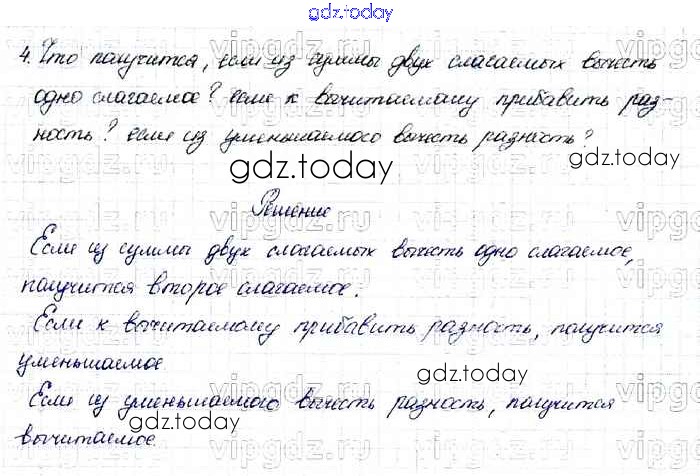 gdz.today
4. Что получится, если из суммы двух слагаемых вычесть
одно слагаемое? если к вычитаемому прибавить раз-
ность? если из уменьшаемого вычесть разность?
gdz.today
gdz.today
Решение
Если из суммы двух слагаемых вычесть одно слагаемое,
получится второе слагаемое.
Если к вычитаемому прибавить разность, получится
уменьшаемое.
gdz.today
Если из уменьшаемого вычесть разность, получится
вычитаемое.